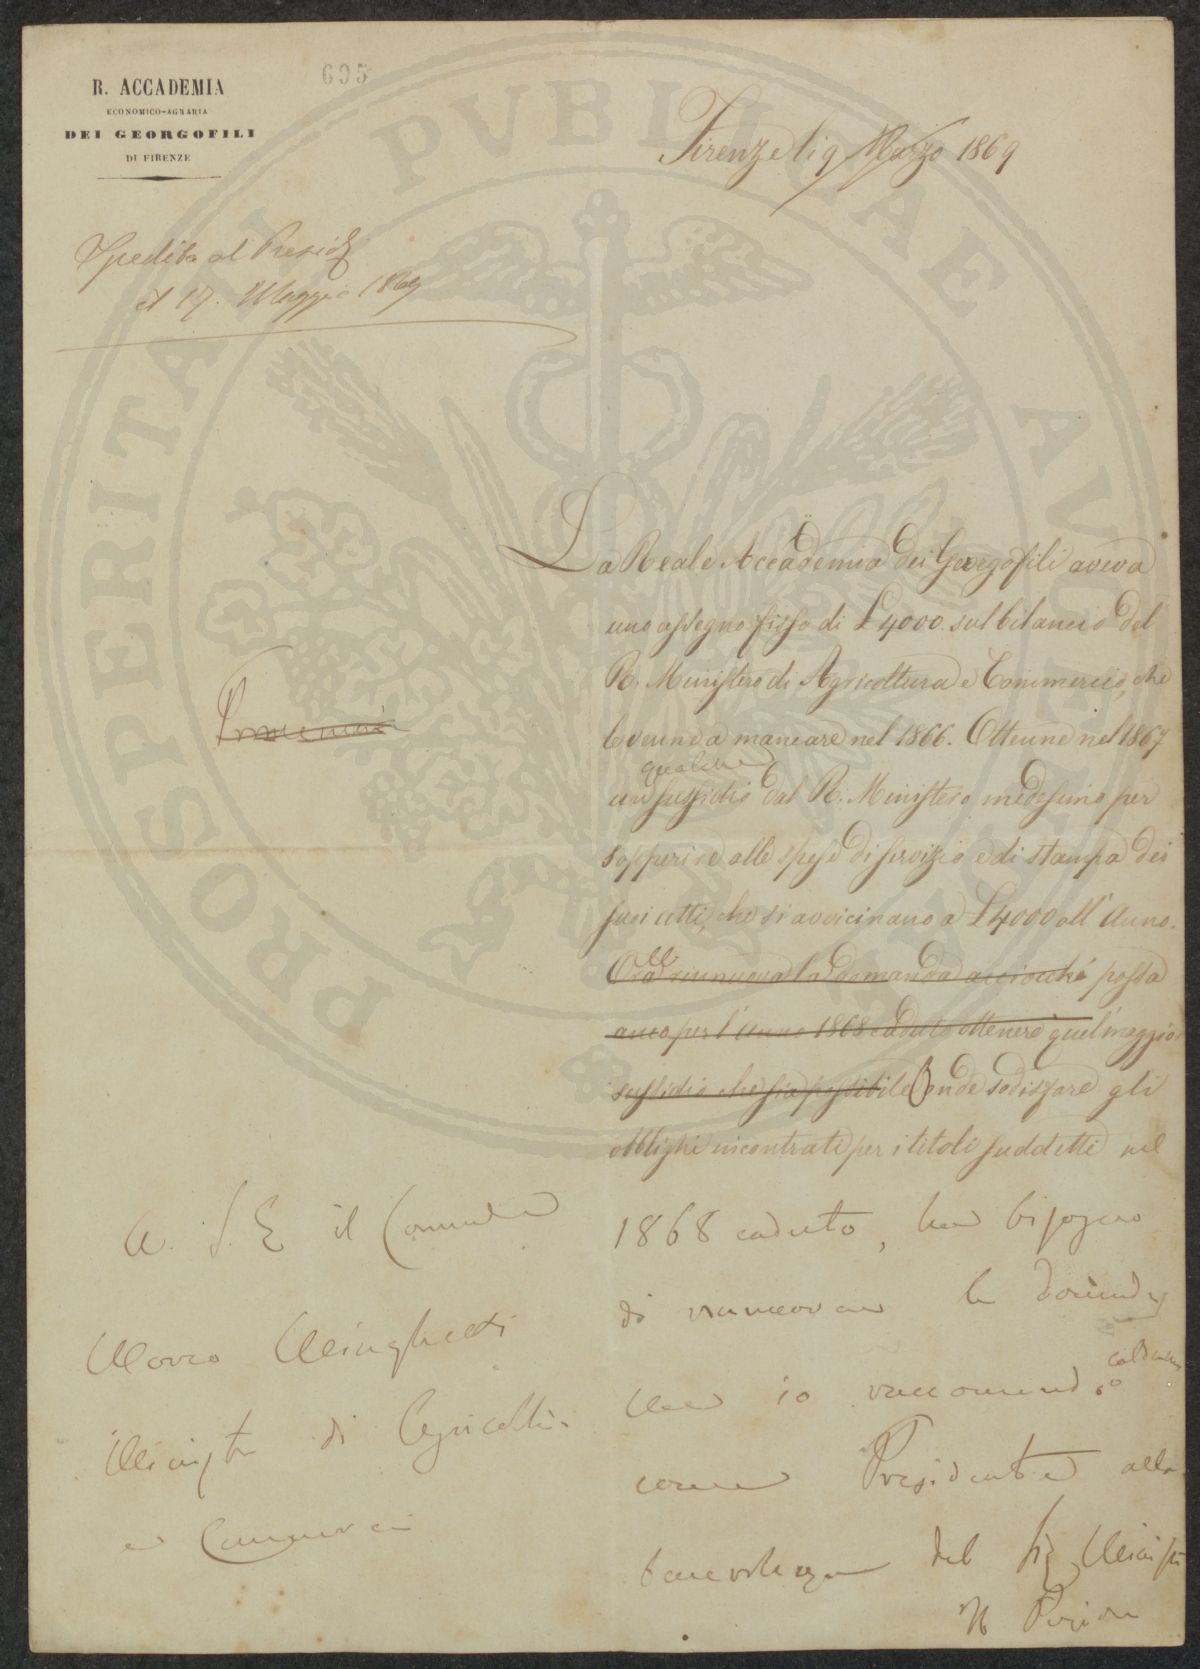 R. ACCADEMIA
ECONOMICO-AGRARIA
DEI GEORGOFILI
DI FIRENZE
695
Firenze li 9 Marzo 1869
Spedita al Presid
il 17. Maggio 1869
La Reale Accademia dei Georgofili aveva
uno assegno fisso di £ 4000. sul bilancio del
R. Ministero di Agricoltura e Commercio, che
le venne a mancare nel 1866. Ottenne nel 1867
qualche
un sussidio dal R. Ministero medesimo per
sopperire alle spese di servizio e di stampa dei
suoi atti, che si avvicinano a £ 4000 all'Anno.
Ora rinnuova la domanda acciocchè possa
anco per l'anno 1868 caduto ottenere quel maggior
sussidio che sia possibile onde sodisfare gli
obblighi incontrati per i titoli suddetti nel
1868 caduto, ha bisogno
di rinnuovare la domanda
che io raccomando
come Presidente alla
benevolenza del Sig Ministro
Il
A. S. E il
Marco Minghetti
Ministro di Agricolt.
e Commercio
PROSPERITATI PVBLICAE AVGENDAE